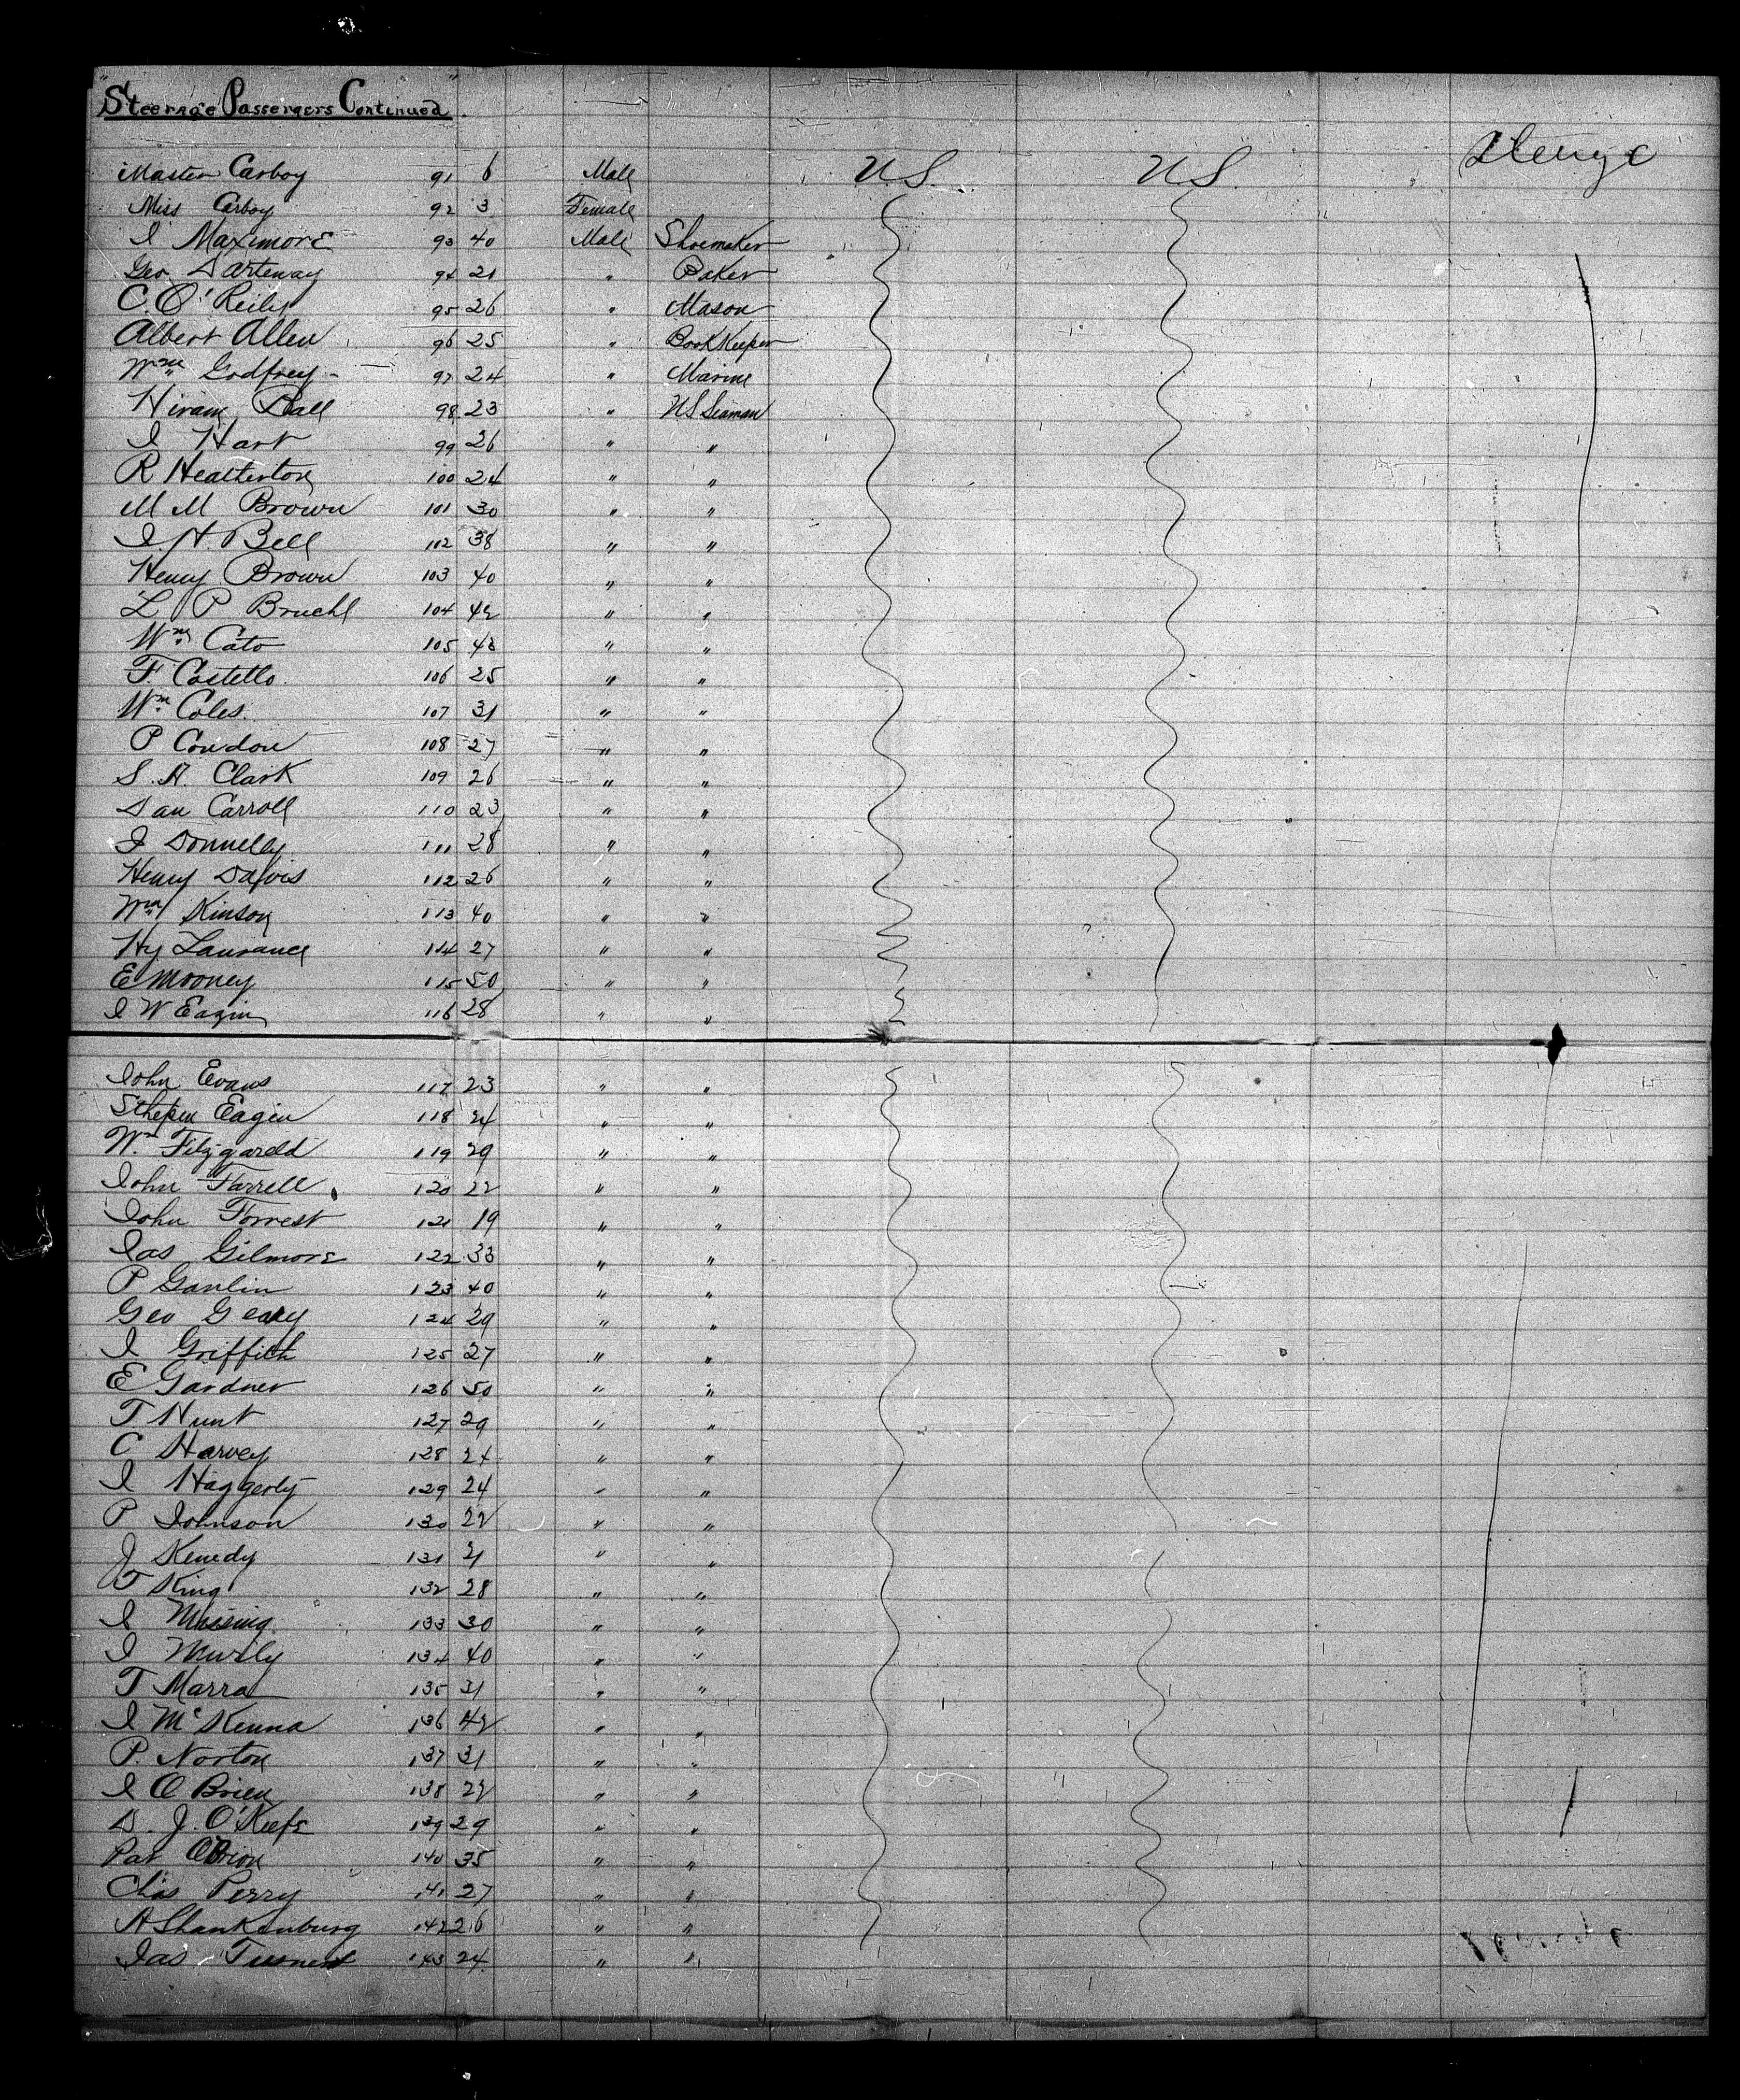 "Steerage Passengers Continued"
Steerage
Master Carboy 91 6 Male U.S. U.S.
Miss Carboy 92 3 Female
I Maximore 93 40 Male Shoemaker
Geo. Dartenay 94 21 " Baker
C. O'Reily 95 26 " Mason
Albert Allen 96 25 " BookKeeper
Wm Godfrey 97 24 " Marine
Hiram Ball 98 23 " US Seaman
I Hart 99 26 " "
R Heatherton 100 24 " "
M M Brown 101 30 " "
I. H. Bell 102 38 " "
Henry Brown 103 40 " "
L P Bruchl 104 42 " "
Wm Cato 105 48 " "
F. Costello 106 25 " "
Wm Coles. 107 31 " "
P Condon 108 27 " "
S. A. Clark 109 26 " "
Dan Carroll 110 23 " "
I Donnelly 111 28 " "
Henry Davis 112 26 " "
Wm Kinson 113 40 " "
Hy Laurance 114 27 " "
E Mooney 115 50 " "
I W Eagin 116 28 " "
John Evans 117 23 " "
Sthepen Eagin 118 24 " "
Wm Fitzgareld 119 29 " "
John Farrell 120 22 " "
John Forrest 121 19 " "
Jas Gilmore 122 33 " "
P Ganlin 123 40 " "
Geo Geary 124 29 " "
I Griffith 125 27 " "
E Gardner 126 50 " "
T Hunt 127 29 " "
C Harvey 128 24 " "
I Haggerty 129 24 " "
P Johnson 130 22 " "
J Kenedy 131 21 " "
T King 132 28 " "
I Messing 133 30 " "
I Murly 134 40 " "
T Marra 135 31 " "
I McKenna 136 42 " "
P. Norton 137 31 " "
I O Brien 138 22 " "
D. J. O'Keefe 139 29 " "
Pat OBrion 140 35 " "
Chas Perry 141 27 " "
A Shankenburg 142 26 " "
Jas Turner 143 24 " "